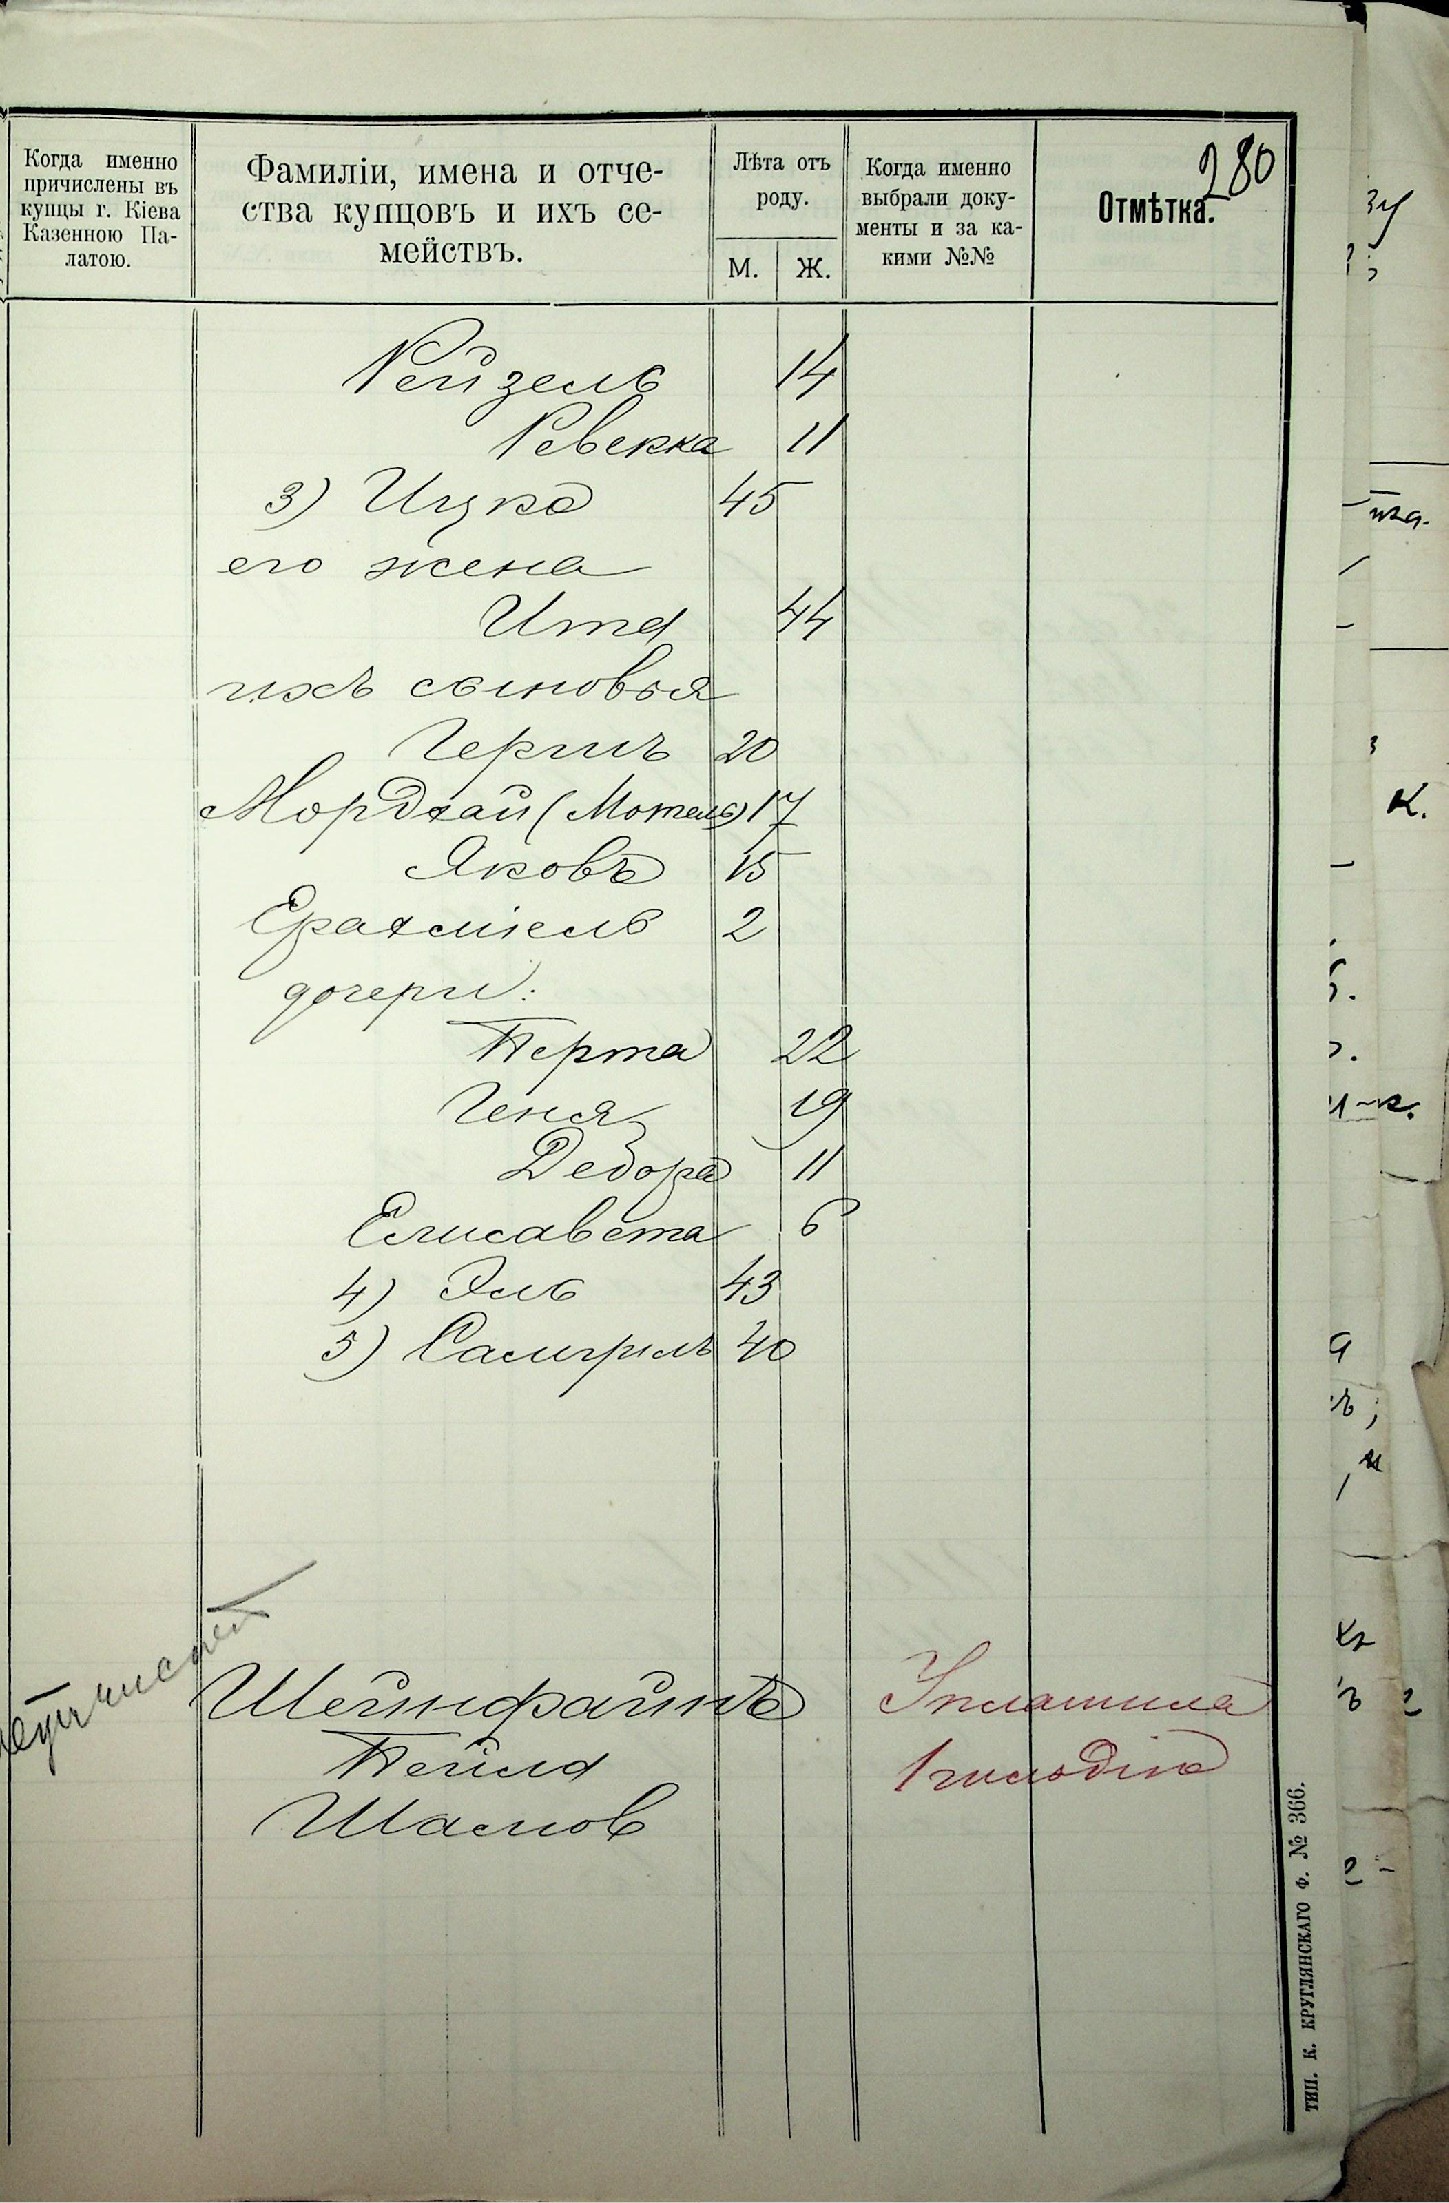 280
Когда именно
причислены въ
купцы г. Кіева
Казенною Па-
латою.
Фамиліи, имена и отче-
ства купцовъ и ихъ се-
мействъ.
Лѣта отъ
роду.
М.
Ж.
Когда именно
выбрали доку-
менты и за ка-
кими №№
Отмѣтка.
Рейзель 14
Ревекка 11
3) Ицко 45
его жена
Ита 44
ихъ сыновья
Герш 20
Мордхай (Мотель) 17
Яковъ 15
Ерахміель 2
дочери:
Перта 22
Геня 19
Дебора 11
Елисавета 6
4) Эль 43
5) Самуилъ 40
Шейнфайнъ
Уплатила
Пейла
1 гильдіи
ТИП. К. КРУГЛЯНСКАГО Ф. № 366.